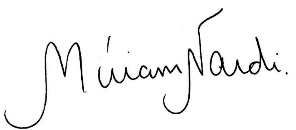 Miriam Nardi.